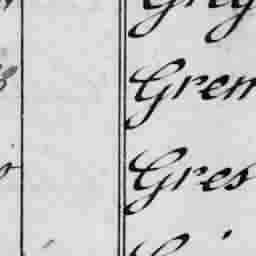 Greg
Grem
Gres